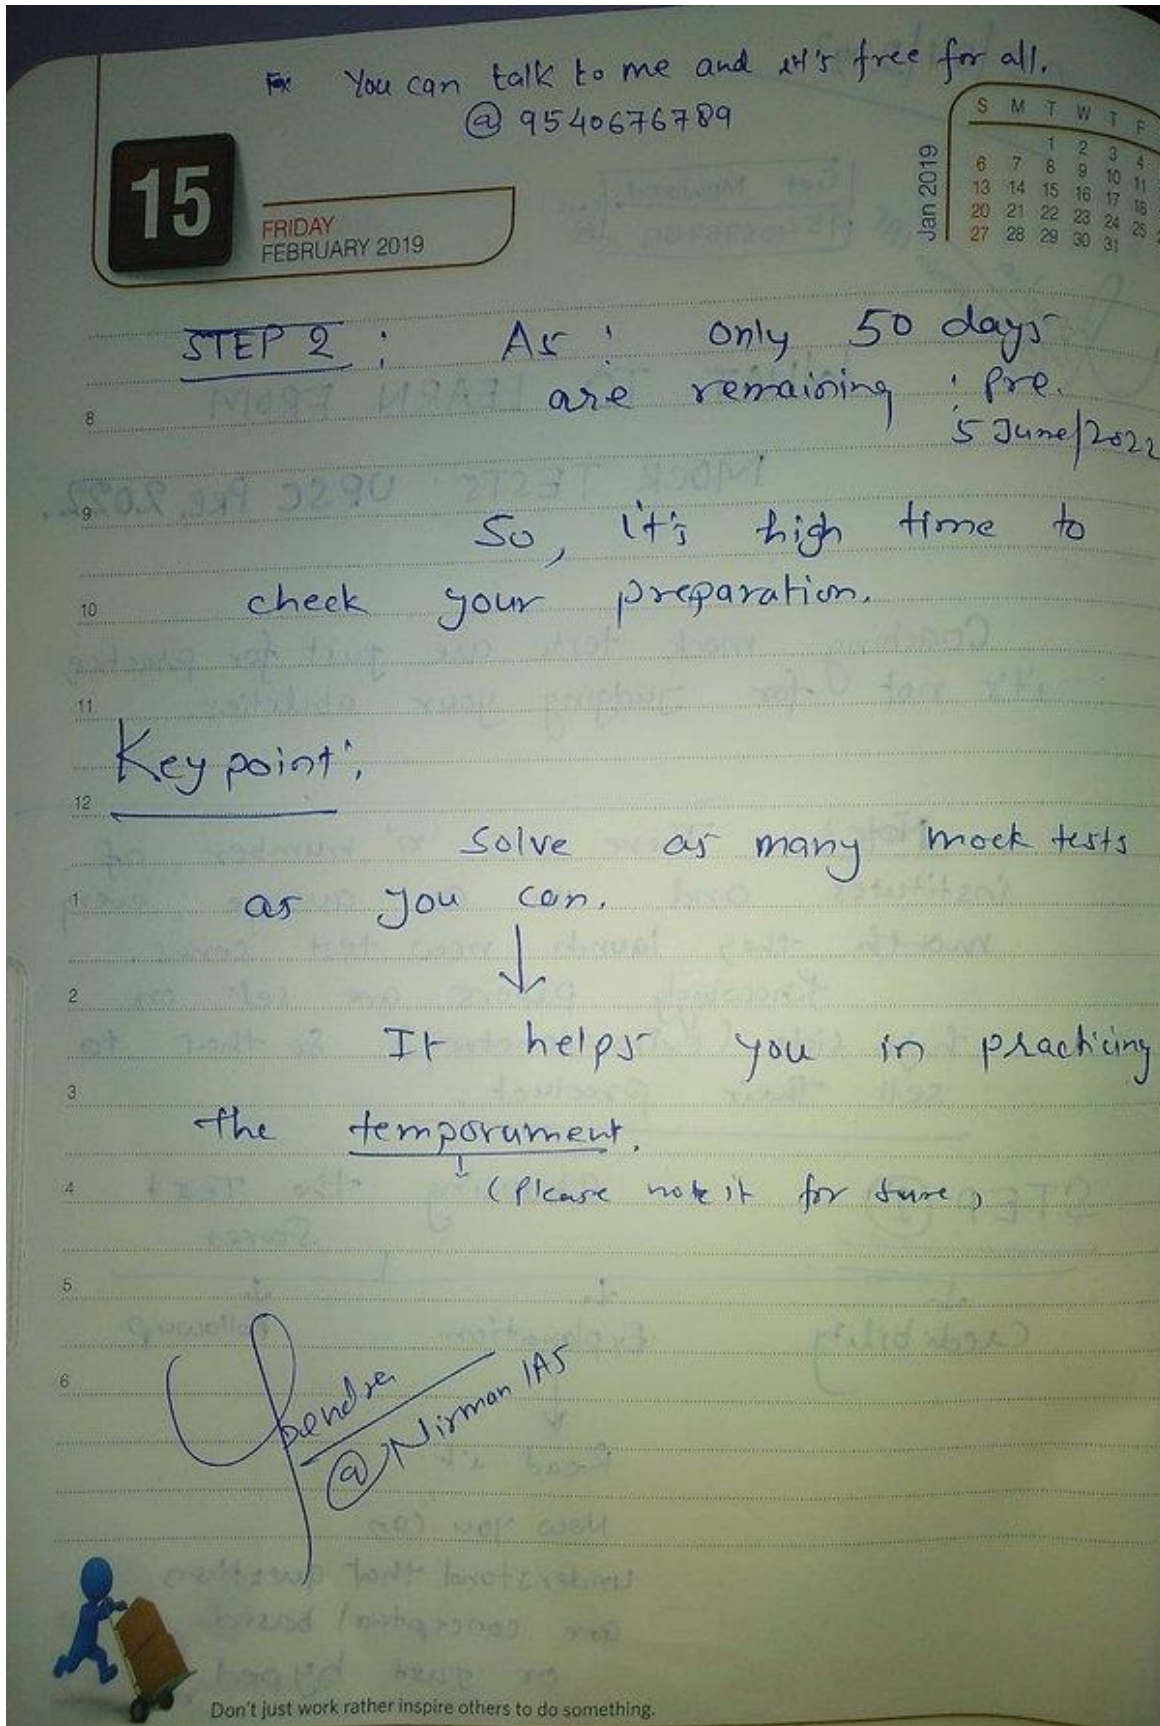 You can talk to me and it's free for all.
@ 9540676789
15
FRIDAY
FEBRUARY 2019
Jan 2019
S M T W T F
1 2 3 4
6 7 8 9 10 11
13 14 15 16 17 18
20 21 22 23 24 25
27 28 29 30 31
STEP 2 : As : only 50 days
are remaining : Pre.
5 June/2022
8
9
So, it's high time to
10
check your preparation.
11
Key point :
12
Solve as many mock tests
1
as you can.
↓
2
It helps you in practicing
3
the temporament.
4
(Please note it for sure)
5
6
@Nirman IAS
Don't just work rather inspire others to do something.